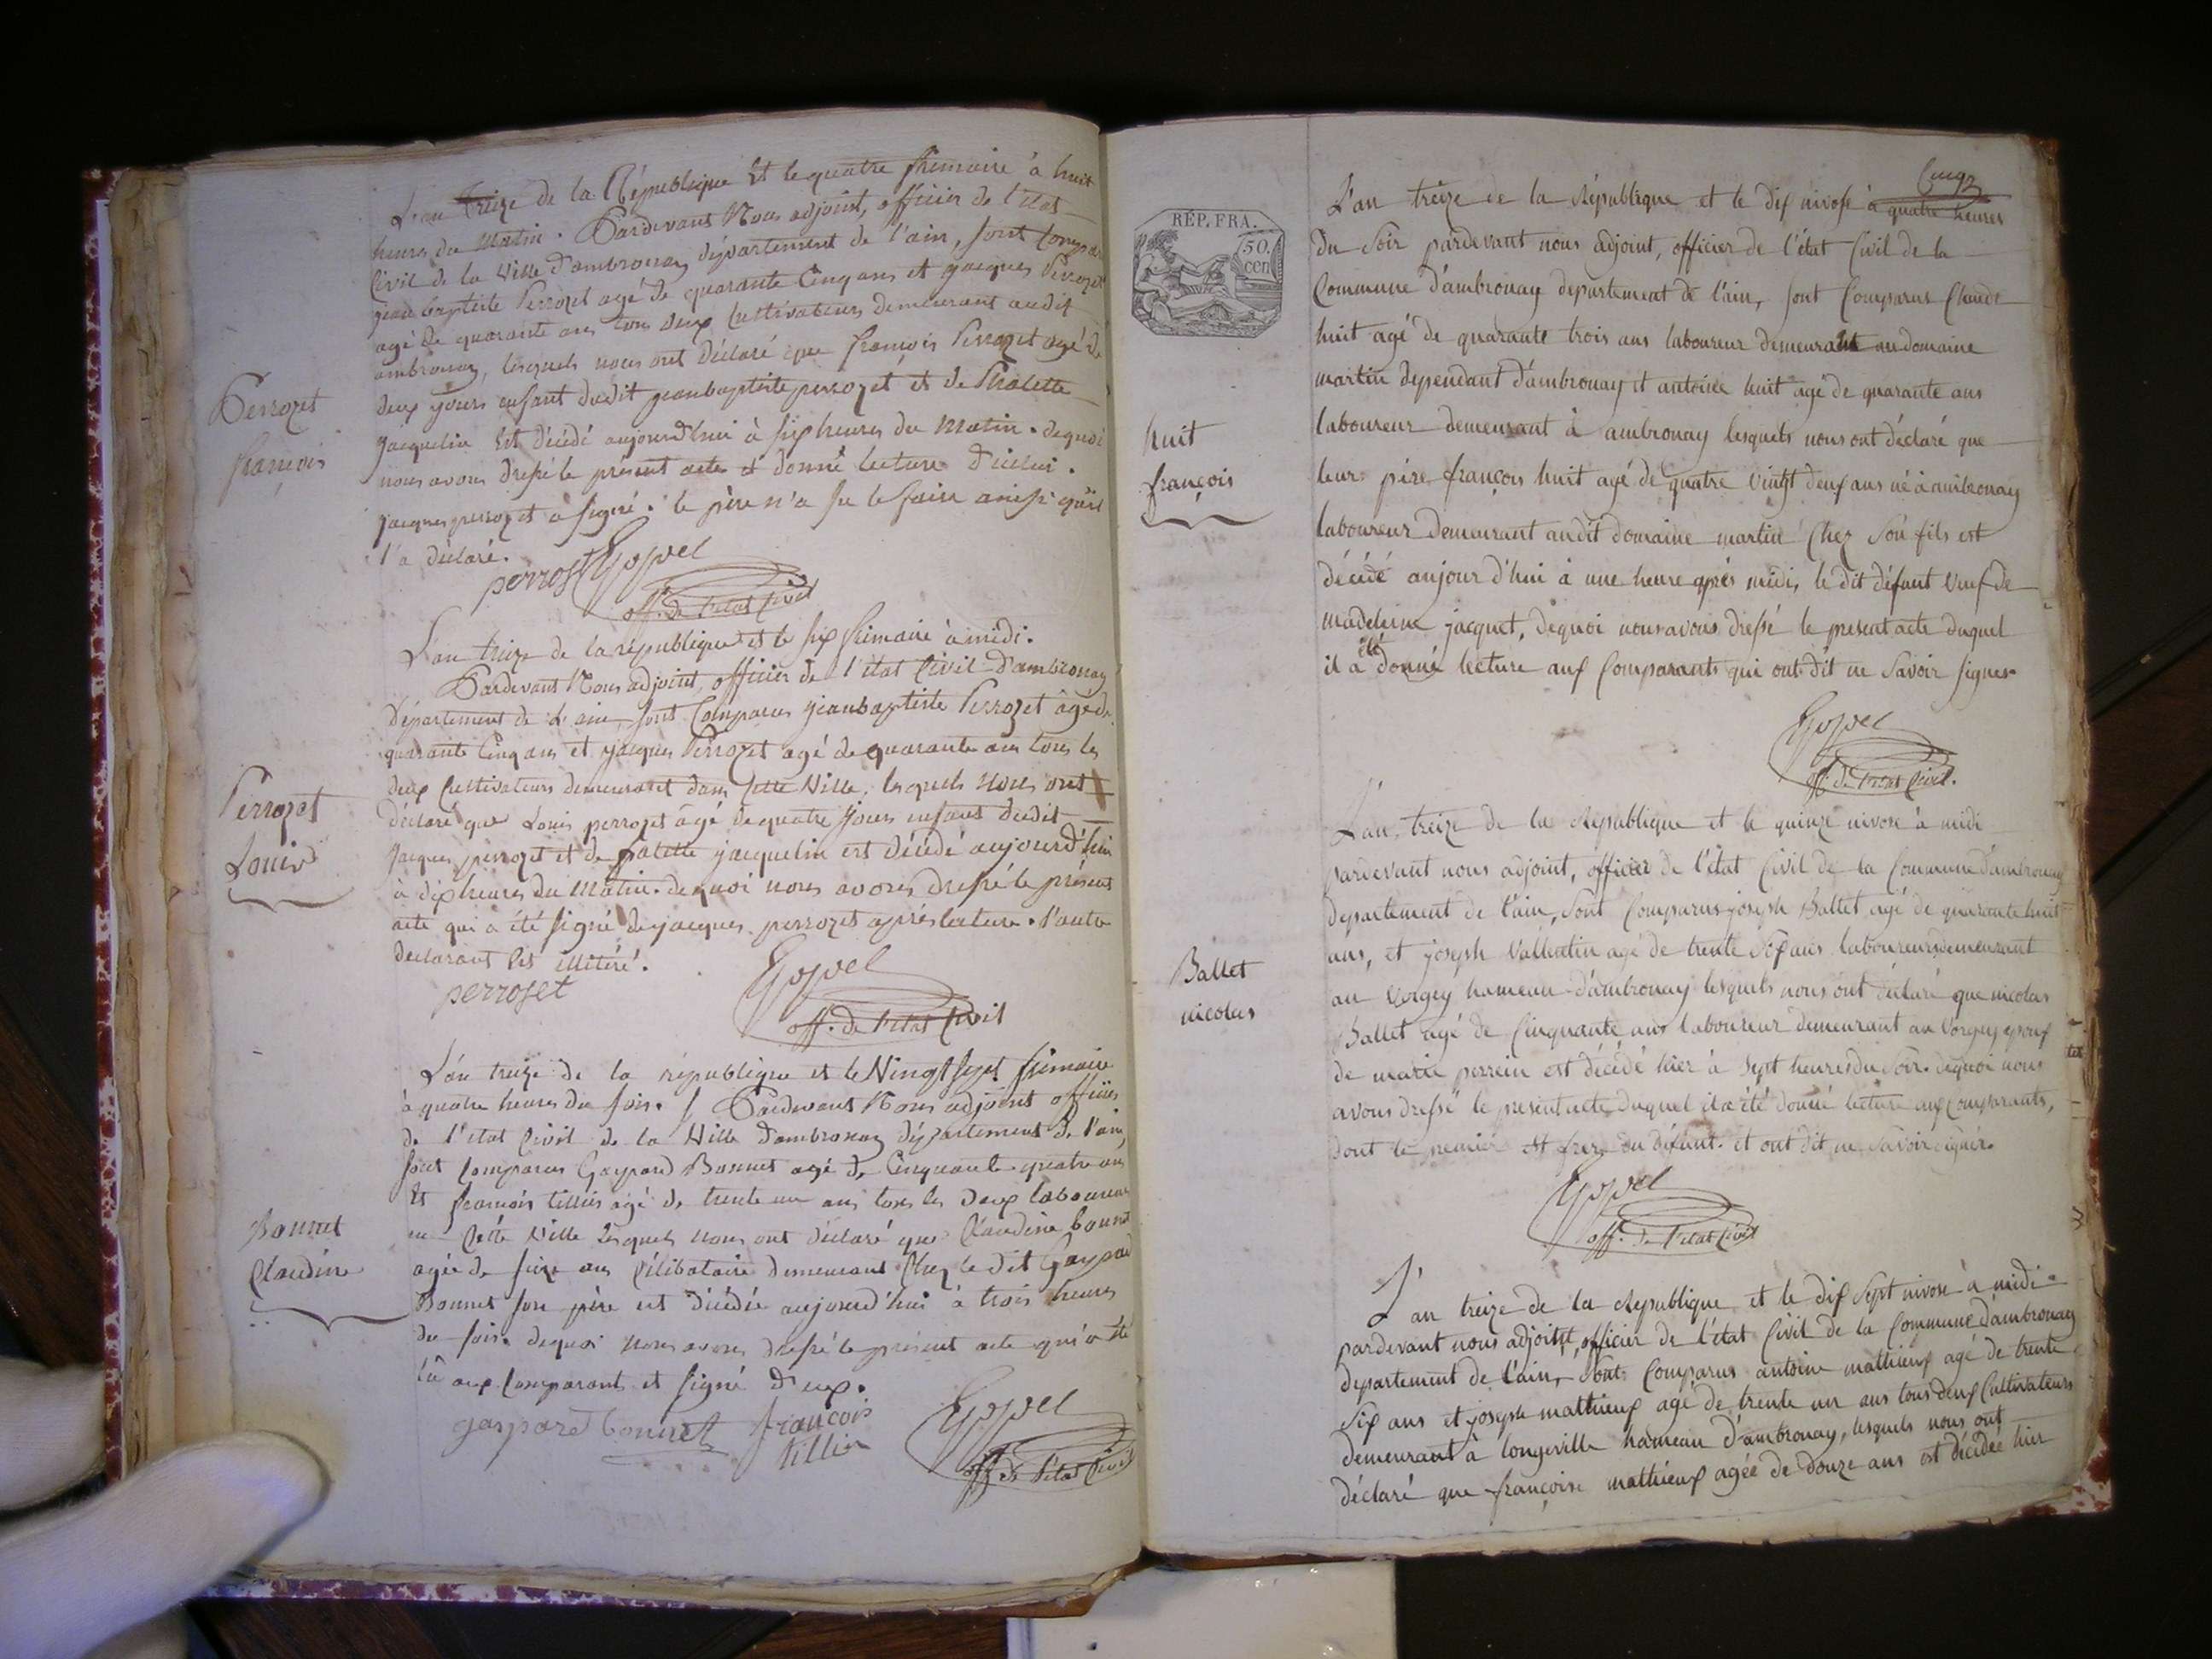 L'an treize de la République Et le quatre frimaire à huit
heures du Matin. Pardevant Nous adjoint, officier de l'état
Civil de la Ville d'ambronay département de l'ain, sont Compar
jean baptiste Perrozet agé de quarante Cinq ans et jacques Perrozet
agé de quarante ans tous deux Cultivateurs demeurant audit
ambronay, lesquels nous ont déclaré que françois Perrozet agé de
deux jours enfant dudit jeanbaptiste perrozet et de
jacquelin Est décédé aujourd'hui à six heures du Matin. dequoi
nous avons dressé le présent acte et donné lecture d'icelui.
jacques perrozet a signé. le père n'a su le faire ainsi qu'il
l'a déclaré.
Perrozet
françois
perroset Goyvel
off. de l'etat Civil
L'an treize de la république et le six frimaire à midi.
Pardevant Nous adjoint, officier de l'état Civil d'ambronay
Département de L'ain, sont Comparus jeanbaptiste Perrozet âgé de
quarante Cinq ans et jacques Perrozet agé de quarante ans tous les
deux Cultivateurs demeurant dans Cette Ville, lesquels Nous ont
déclaré que Louis perrozet âgé de quatre jours enfant dudit
jacques perrozet et de jacquelin est décédé aujourd'hui
à dix heures du Matin. de quoi nous avons dressé le présent
acte qui a été signé de jacques perrozet après lecture. l'autre
declarant Est illitéré.
Perrozet
Louis
perroset
Goyvel
off. de l'etat Civil
L'an treize de la république et le Vingt Sept frimaire
à quatre heures du soir. Pardevant Nous adjoint officier
de l'état Civil de la Ville d'ambronay département de l'ain,
sont comparus Gaspard Bonnet agé de Cinquante quatre ans
Et françois tillier agé de trente un ans tous les deux laboureurs
en Cette Ville Lesquels nous ont déclaré que Claudine bonnet
agée de seize ans Célibataire demeurant Chez le dit Gaspard
Bonnet son père est décédée aujourd'hui à trois heures
du soir. dequoi nous avons dressé le présent acte qui a été
lû aux Comparants et signé d'eux.
Bonnet
Claudine
gaspard bonnet françois
tillier
Goyvel
off. de l'etat Civil
RÉP. FRA.
50.
cen
Cinq
L'an treize de la République et le dix nivose à quatre heures
du Soir pardevant nous adjoint, officier de l'état Civil de la
Commune d'ambronay departement de l'ain, sont Comparus Claude
huit agé de quarante trois ans laboureur demeurant au domaine
martin dependant d'ambronay et antoine huit agé de quarante ans
laboureur demeurant à ambronay lesquels nous ont déclaré que
leur père françois huit agé de quatre vingt deux ans né à ambronay
laboureur demeurant audit domaine martin Chez Son fils est
décédé aujour d'hui à une heure après midi, le dit défunt veuf de
madeleine jacquet, dequoi nous avons dressé le present acte duquel
il a été donné lecture aux Comparants qui ont dit ne Savoir signer.
huit
françois
Goyvel
off. de l'etat Civil.
L'an treize de la République et le quinze nivose à midi
pardevant nous adjoint, officier de l'état Civil de la Commune d'ambronay
departement de l'ain, Sont Comparus joseph Ballet agé de quarante huit
ans, et joseph Vallentin agé de trente Six ans laboureurs demeurant
au Vorgey hameau d'ambronay lesquels nous ont déclaré que nicolas
Ballet agé de Cinquante ans laboureur demeurant au Vorgey epoux
de marie perrein est décédé hier à Sept heures du Soir. dequoi nous
avons dressé le present acte duquel il a été donné lecture aux Comparants,
dont le premier est frere du défunt. et ont dit ne Savoir signer.
Ballet
nicolas
Goyvel
off. de l'etat Civil
L'an treize de la République et le dix Sept nivose à midi
pardevant nous adjoint, officier de l'état Civil de la Commune d'ambronay
departement de l'ain, Sont Comparus antoine mathieux agé de trente
Six ans et joseph mathieux agé de trente un ans tous deux Cultivateurs
demeurant à longeville hameau d'ambronay, lesquels nous ont
déclaré que françoise mathieux agée de douze ans est décédée hier